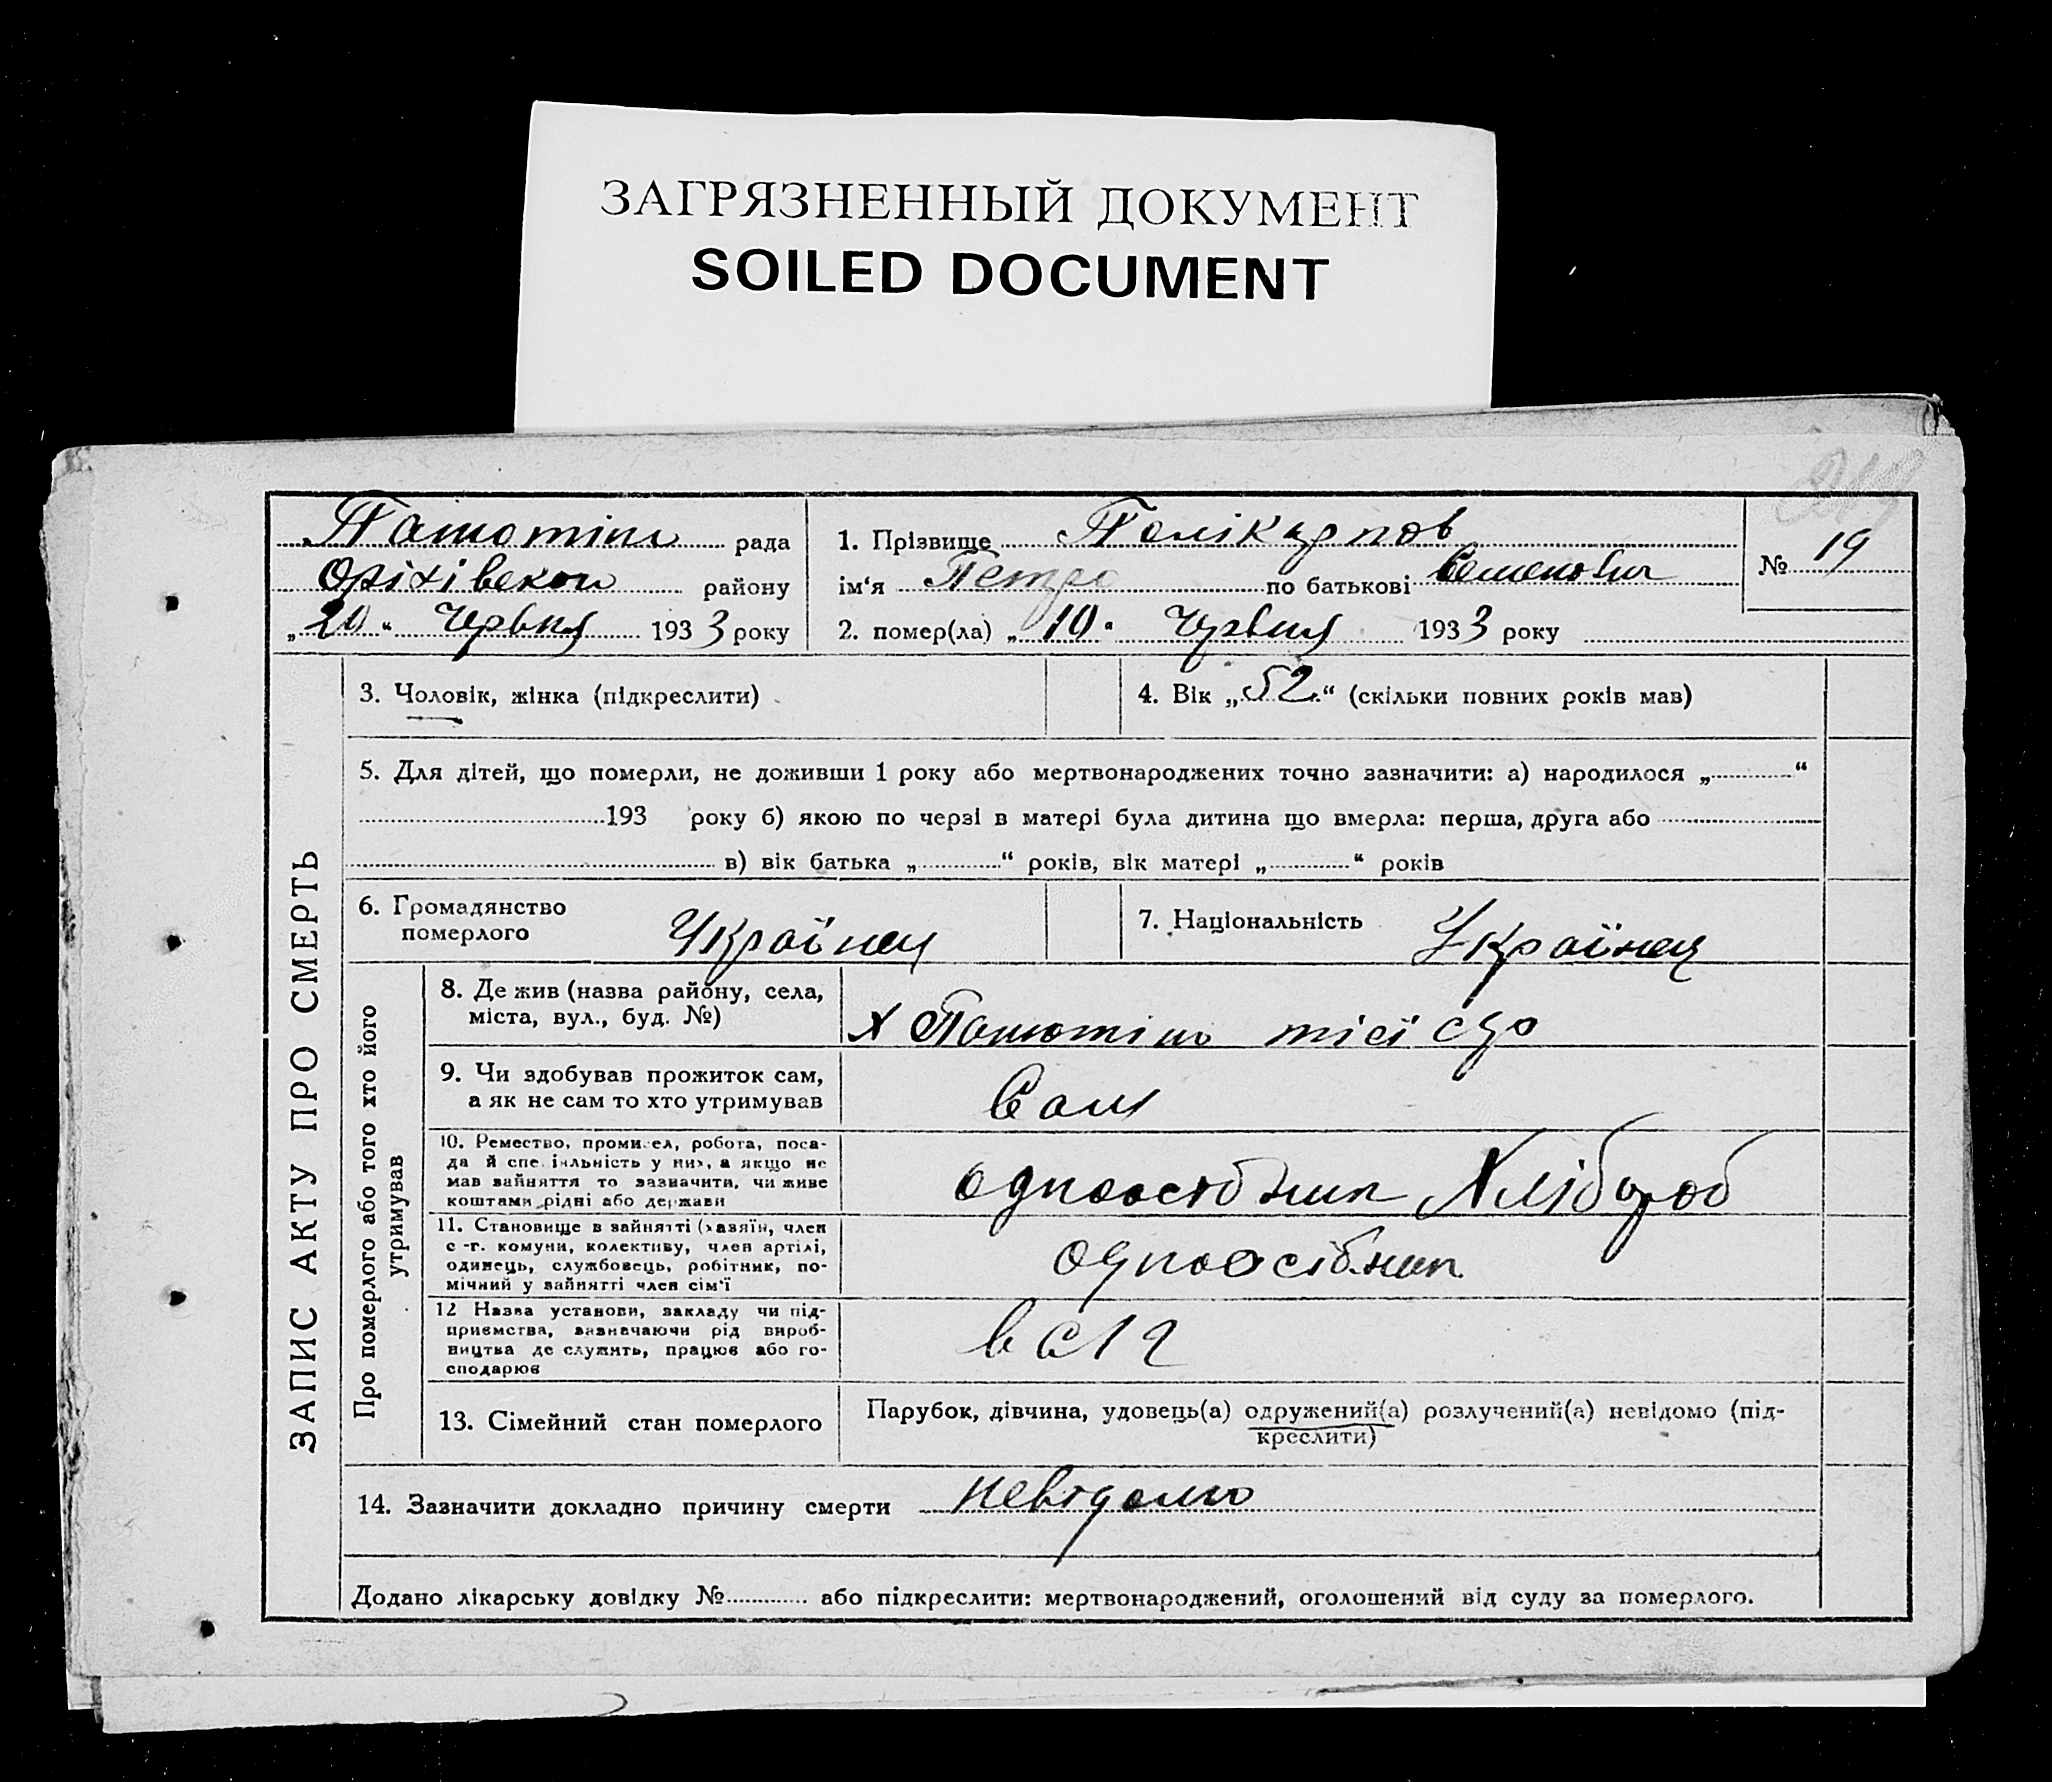 ЗАГРЯЗНЕННЫЙ ДОКУМЕНТ
SOILED DOCUMENT
рада
району
„20“ Червня 1933 року
1. Прізвище Полікарпов
ім‘я Петро по батькові Семенович
2. помер(ла) „10“ Червня 1933 року
№ 19
ЗАПИС АКТУ ПРО СМЕРТЬ
3. Чоловік, жінка (підкреслити)
4. Вік „52“ (скільки повних років мав)
5. Для дітей, що померли, не доживши 1 року або мертвонароджених точно зазначити: а) народилося „ “
193 року б) якою по черзі в матері була дитина що вмерла: перша, друга або
в) вік батька „ “ років, вік матері „ “ років
6. Громадянство
померлого
Українец
7. Національність Українец
Про померлого або того хто його
утримував
8. Де жив (назва району, села,
міста, вул., буд. №)
9. Чи здобував прожиток сам,
а як не сам то хто утримував
Сам
10. Ремество, промисел, робота, поса-
да й спеціяльність у них, а якщо не
мав зайняття то зазначити, чи живе
коштами рідні або держави
одноосібник Хлібороб
11. Становище в зайнятті (хазяїн, член
с.-г. комуни, колективу, член артілі,
одинець, службовець, робітник, по-
мічний у зайнятті член сім‘ї
одноосібник
12 Назва установи, закладу чи під-
приємства, зазначаючи рід вироб-
ництва де служить, працює або го-
сподарює
13. Сімейний стан померлого
Парубок, дівчина, удовець(а) одружений(а) розлучений(а) невідомо (під-
креслити)
14. Зазначити докладно причину смерти невідомо
Додано лікарську довідку № або підкреслити: мертвонароджений, оголошений від суду за померлого.